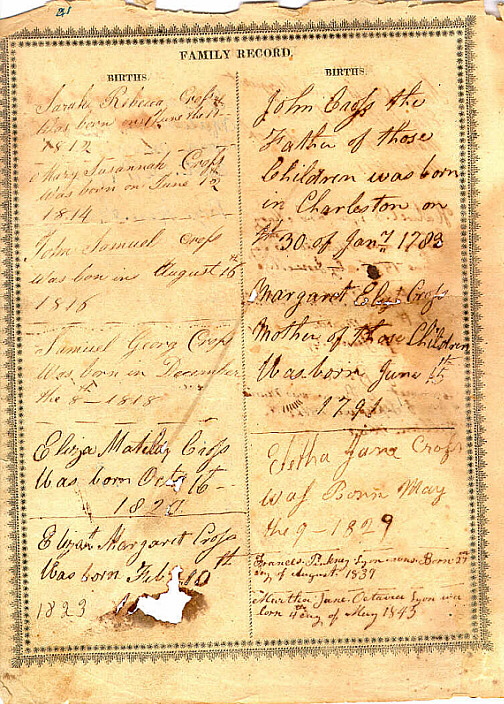 21
FAMILY RECORD.
BIRTHS.
Sarah Rebecca Cross
Was born on June the
1812
Mary Susannah Cross
Was born on June 12
1814
John Samuel Cross
Was bon in August 16th
1816
Samuel Georg Cross
Was born in December
the 8th - 1818
Eliza Matilda Cross
Was born Octr 16th
1820
Elizath Margaret Cross
Was born Feby 10th
1823
BIRTHS.
John Cross the
Father of those
Children was born
in Charleston on
the 30 of Jany 1783
Margaret Elizt Cross
Mother of those Children
Was born June 15th
1791
Eletha Jane Cross
was Born May
the 9 - 1829
Frances Pinkney Lyon was Born 27
day of August 1837
Martha Jane Octavia Lyon was
born 4th day of May 1843